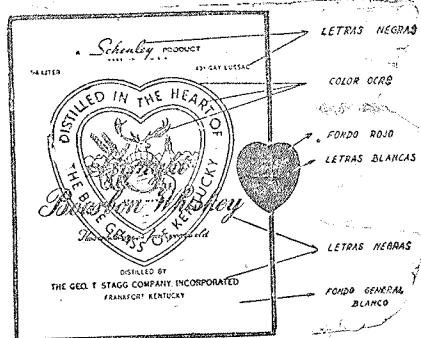 A Schenley PRODUCT
MADE IN U.S.A.
3/4 LITER
43° GAY LUSSAC
DISTILLED IN THE HEART OF
THE BLUE GRASS OF KENTUCKY
Bourbon Whiskey
DISTILLED BY
THE GEO. T. STAGG COMPANY, INCORPORATED
FRANKFORT KENTUCKY
LETRAS NEGRAS
COLOR OCRE
FONDO ROJO
LETRAS BLANCAS
LETRAS NEGRAS
FONDO GENERAL
BLANCO